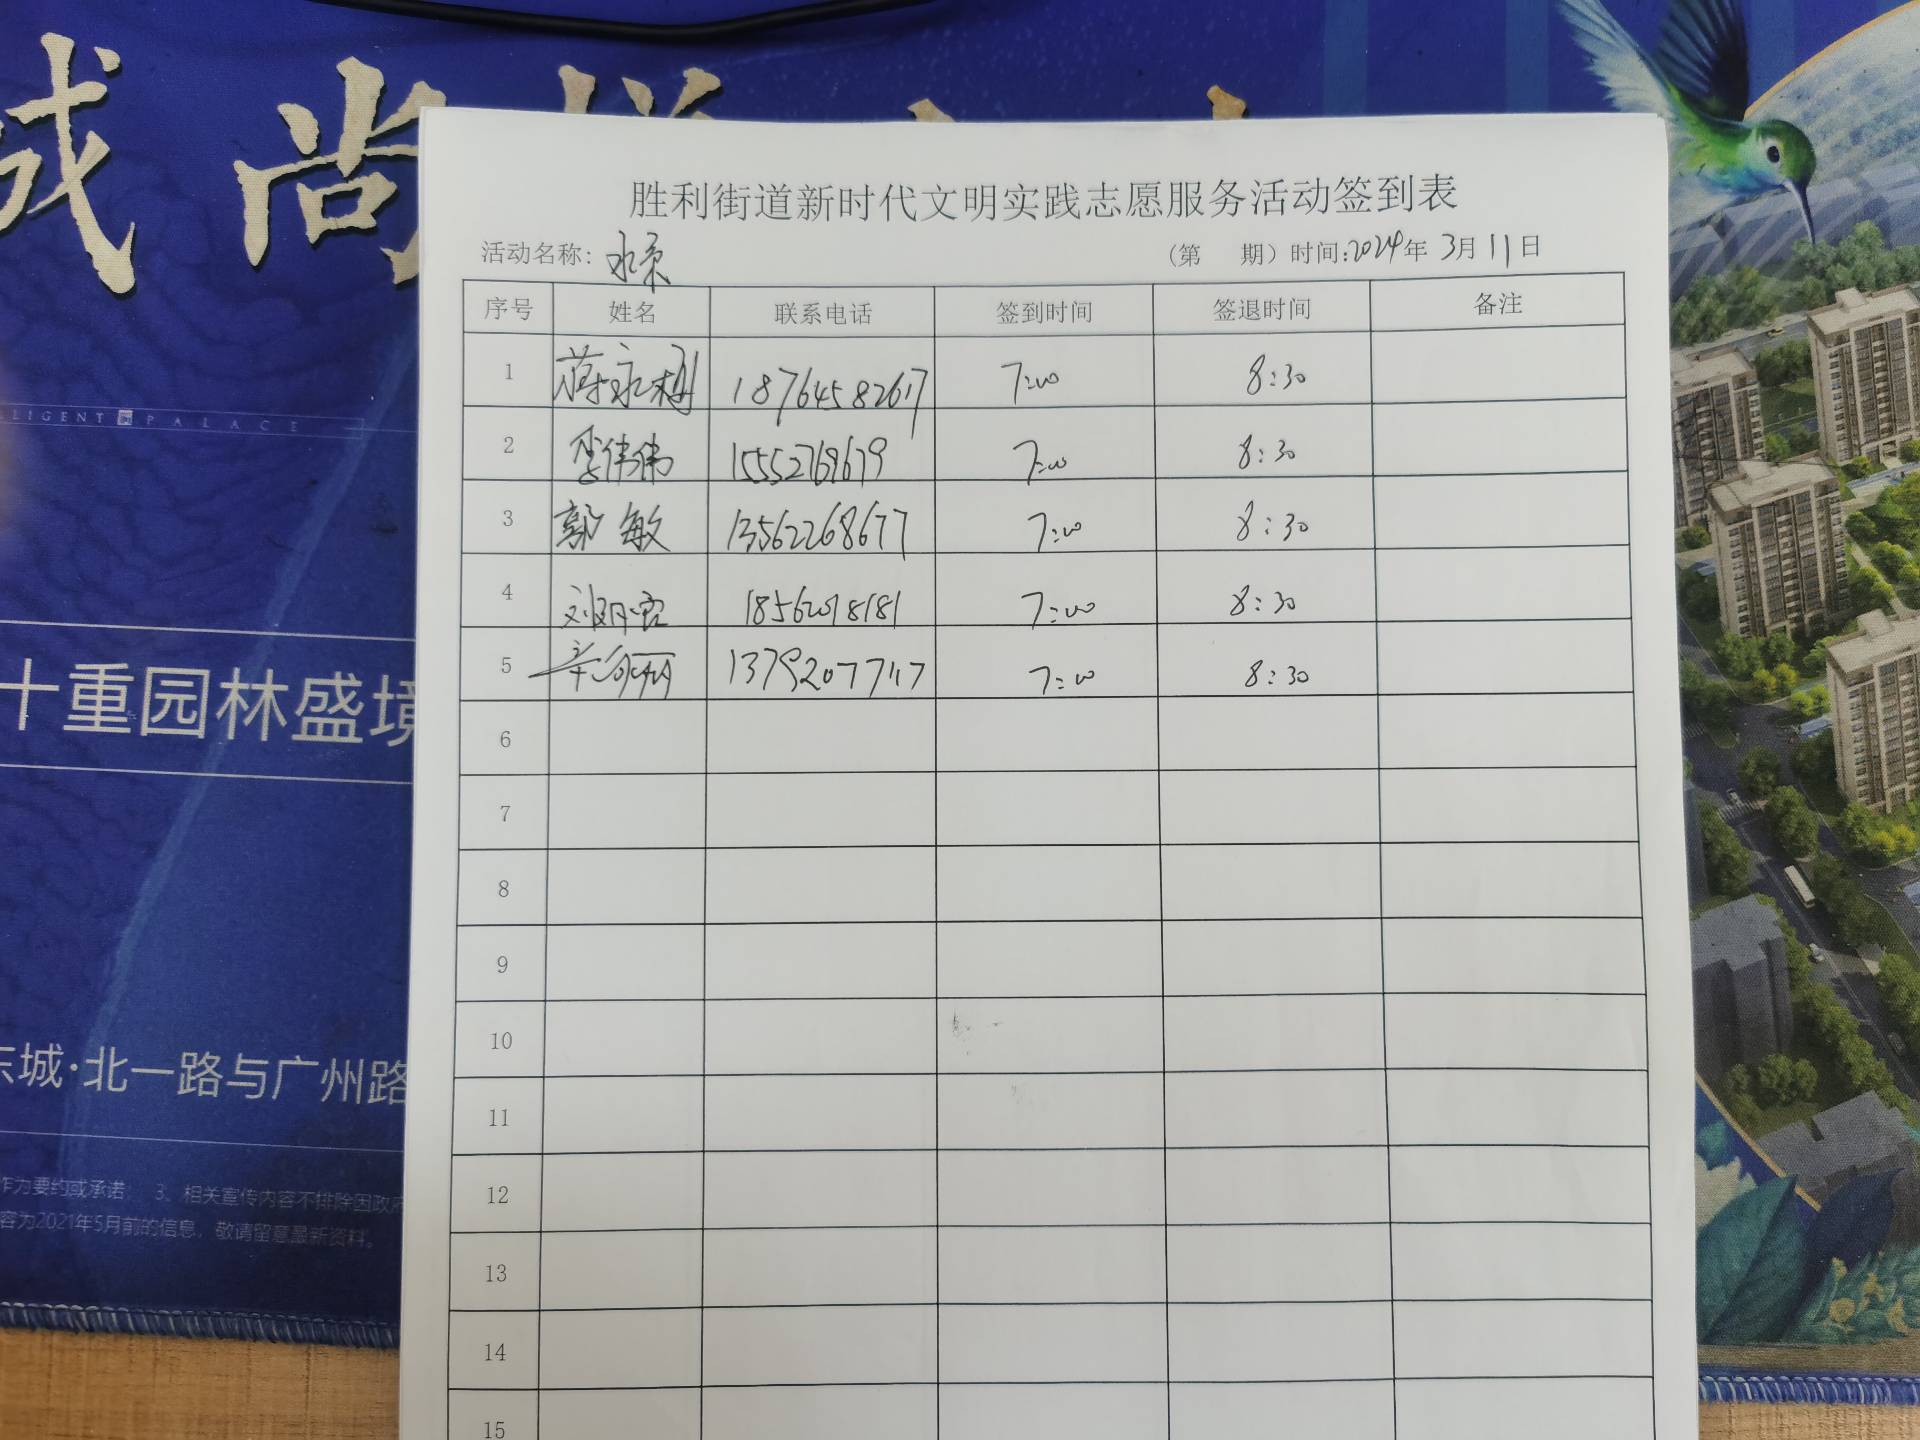 城 尚
LLIGENT PALACE
十重园林盛境
东城·北一路与广州路
作为要约或承诺; 3、相关宣传内容不排除因政府
容为2021年5月前的信息,敬请留意最新资料。
胜利街道新时代文明实践志愿服务活动签到表
活动名称: (第 期)时间:2024年 3月11日
序号 姓名 联系电话 签到时间 签退时间 备注
1 蒋永利 18764582617 7:00 8:30
2 李伟伟 15552769679 7:00 8:30
3 郭敏 13562268677 7:00 8:30
4 7:00 8:30
5 7:00 8:30
6
7
8
9
10
11
12
13
14
15